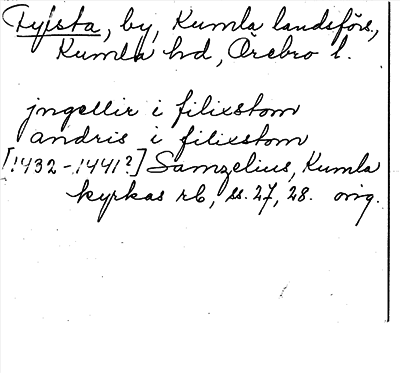 Fylsta, by, Kumla landsförs.,
Kumla hd, Örebro l.
jngellir i filixstom
andris i filixstom
[1432-1441?] Samzelius, Kumla
kyrkas rb, ss. 27, 28. orig.